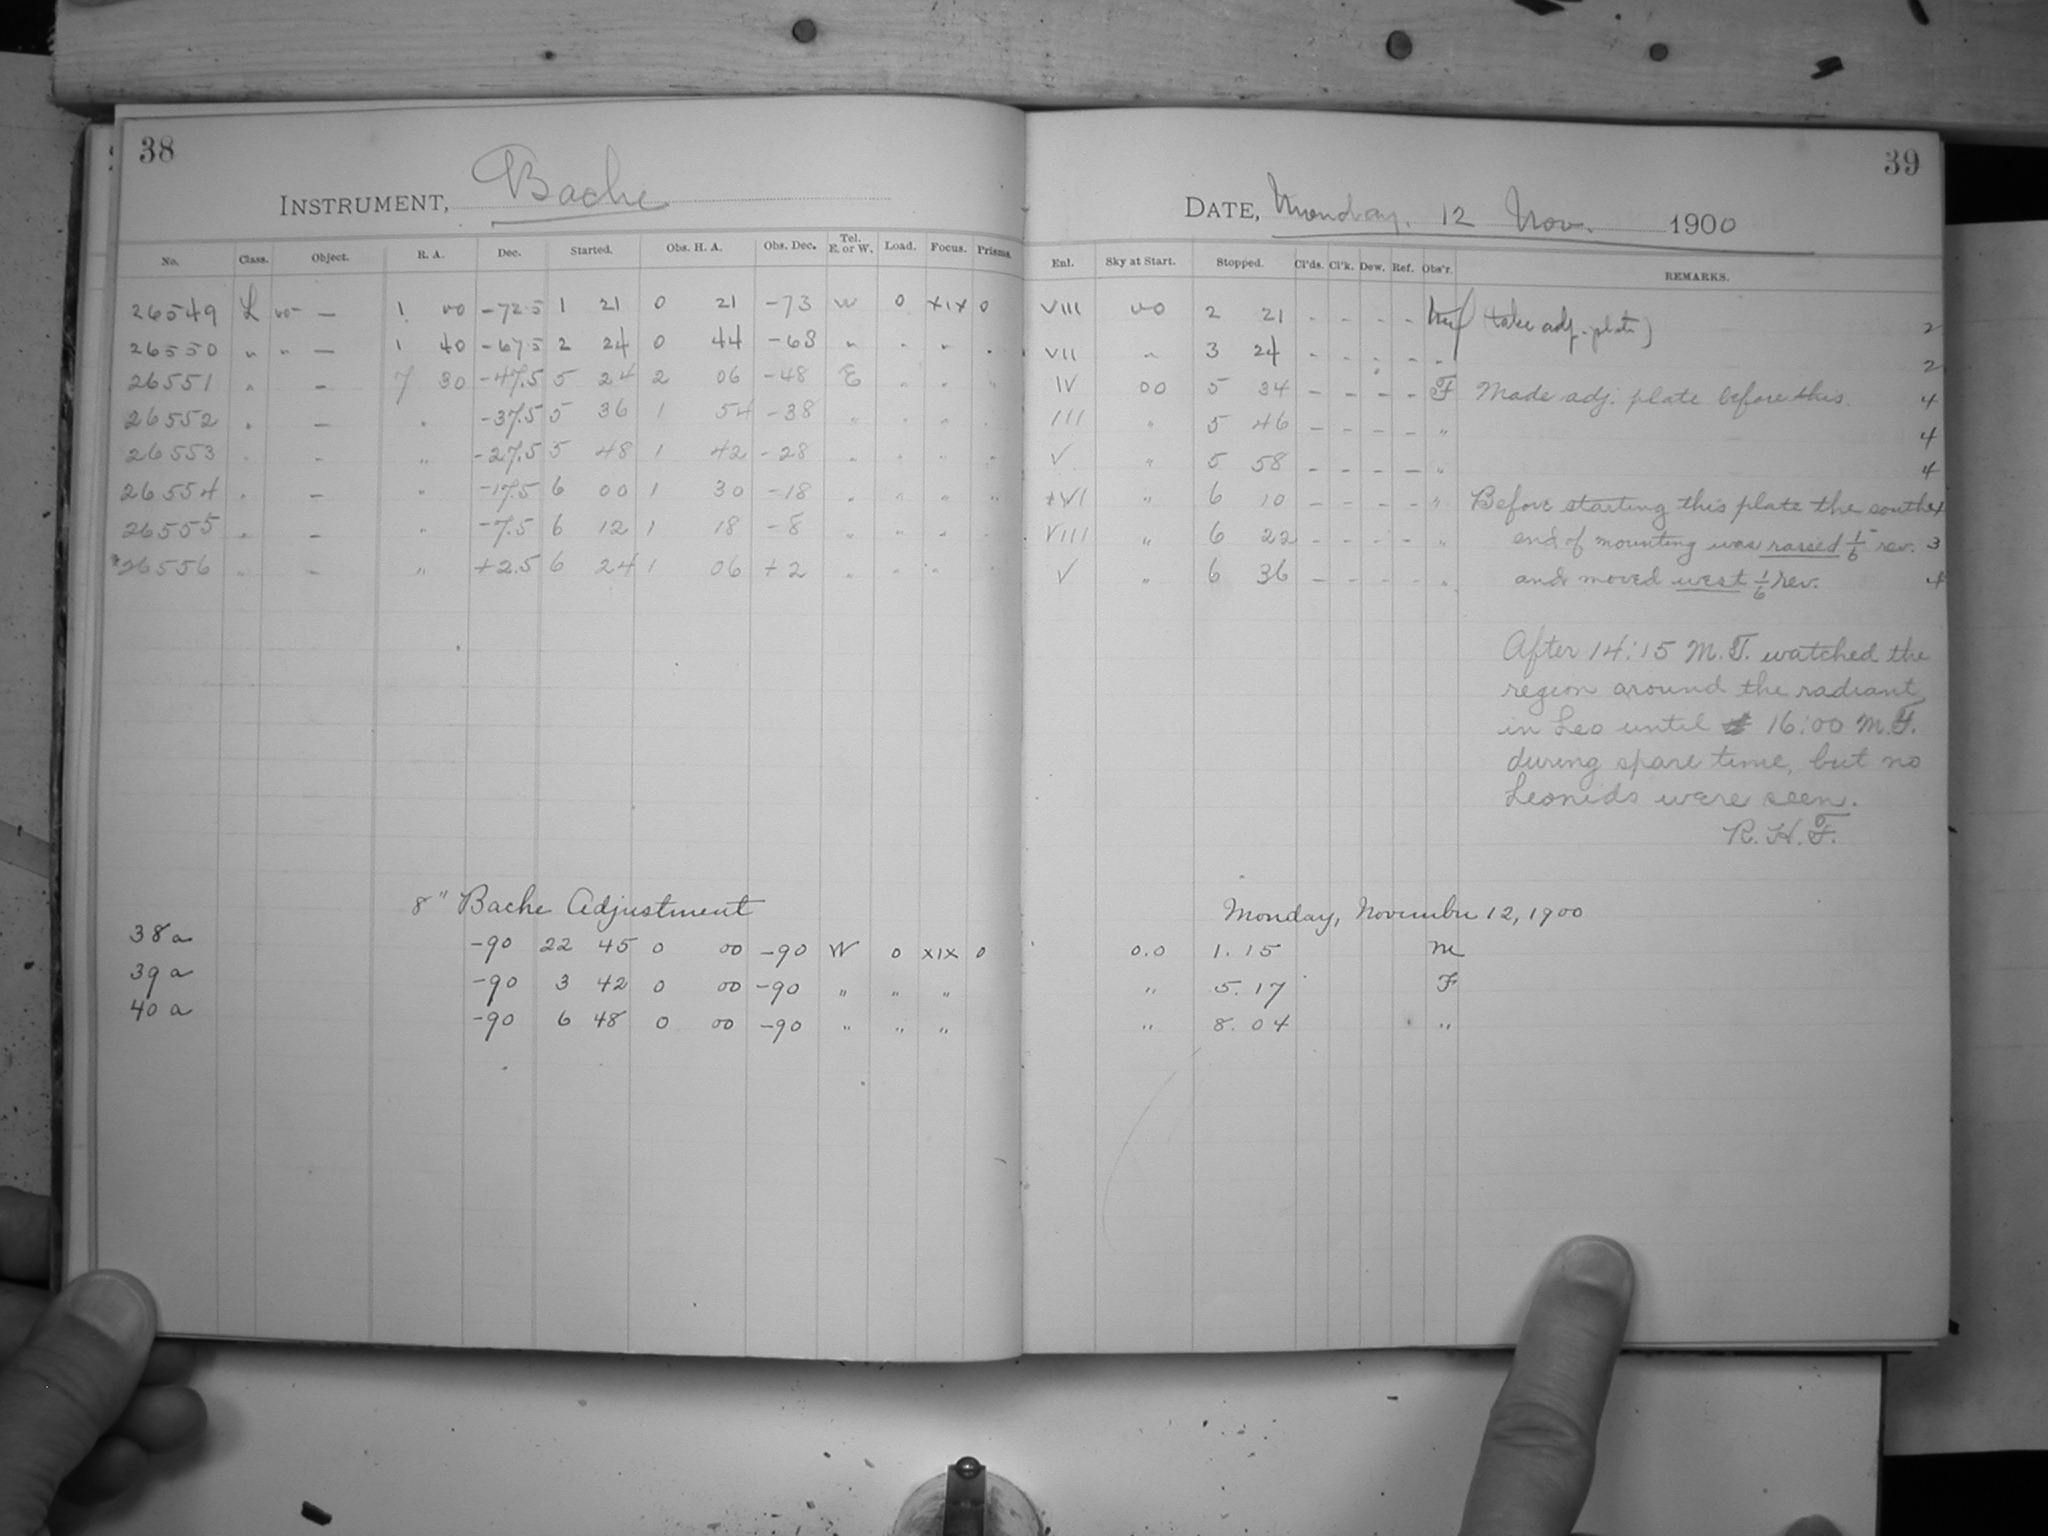 38
39
INSTRUMENT, Bache
DATE, Monday. 12 Nov. 1900
No. Class. Object. R. A. Dec. Started. Obs. H. A. Obs. Dec. Tel. E. or W. Load. Focus. Prisms. Enl. Sky at Start. Stopped. Cl'ds. Cl'k. Dew. Ref. Obs'r. REMARKS.
26549 L — 1 00 -72.5 1 21 0 21 -73 W 0 XIX 0 VIII 00 2 21 - - - - (take adj. plate) 2
26550 " " — 1 40 -67.5 2 24 0 44 -68 " " " " VII " 3 24 - - - - " 2
26551 " — 7 30 -47.5 5 24 2 06 -48 E " " " IV 00 5 34 - - - - F Made adj. plate before this. 4
26552 " — " -37.5 5 36 1 54 -38 " " " " III " 5 46 - - - - " 4
26553 " — " -27.5 5 48 1 42 -28 " " " " V " 5 58 - - - - " 4
26554 " — " -17.5 6 00 1 30 -18 " " " " XVI " 6 10 - - - - " Before starting this plate the south 4
26555 " — " -7.5 6 12 1 18 -8 " " " " VIII " 6 22 - - - - " end of mounting was raised 1/6 rev. 3
26556 " — " +2.5 6 24 1 06 +2 " " " " V " 6 36 - - - - " and moved west 1/6 rev. 4
After 14:15 M.T. watched the
region around the radiant
in Leo until 16:00 M.T.
during spare time, but no
Leonids were seen.
R. H. F.
8" Bache Adjustment Monday, November 12, 1900
38a -90 22 45 0 00 -90 W 0 XIX 0 0.0 1.15 M
39a -90 3 42 0 00 -90 " " " " 5.17 F
40a -90 6 48 0 00 -90 " " " " 8.04 "